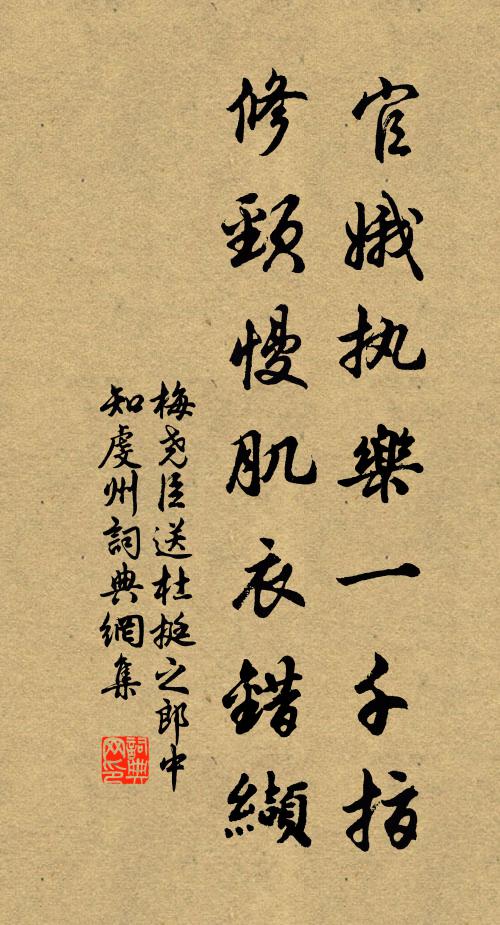 官娥执樂一千指
修頸慢肌衣錯纈
梅尧臣送杜挺之郎中
知虔州詞典網集
詞典网印